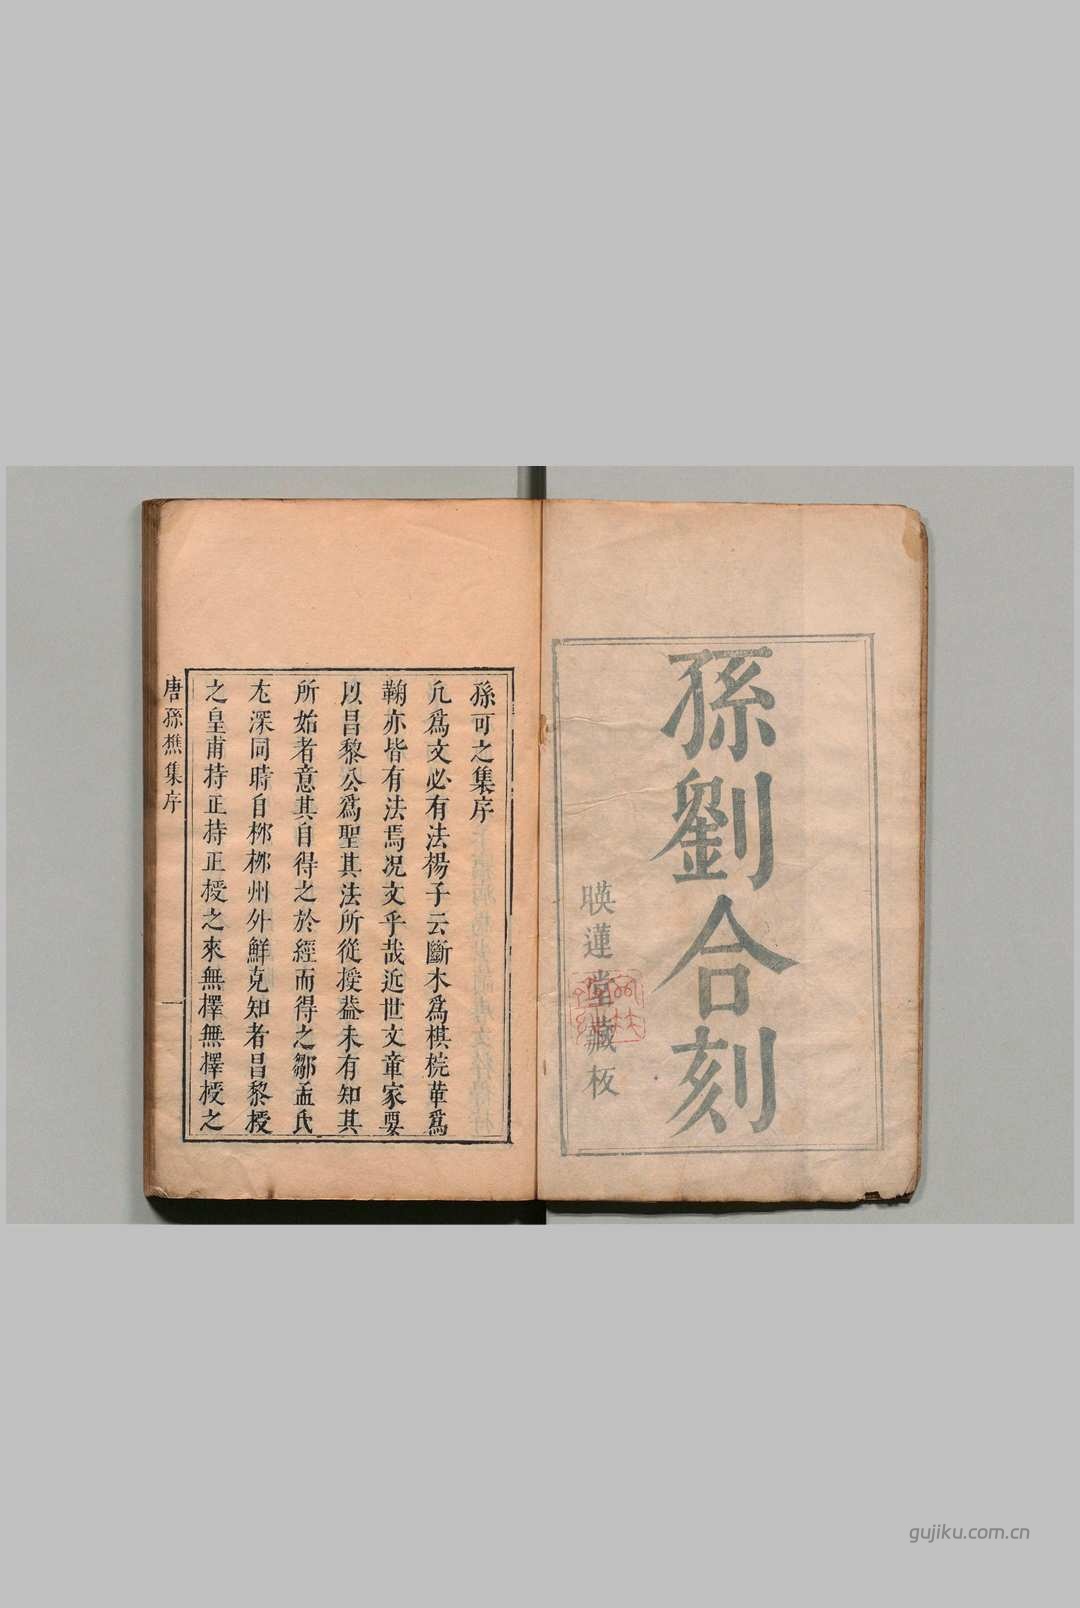 孫劉合刻
暎蓮堂藏板
孫可之集序
凢爲文必有法楊子云斷木爲棋梡革爲
鞠亦皆有法焉况文乎哉近世文章家要
以昌黎公爲聖其法所從授葢未有知其
所始者意其自得之於經而得之鄒孟氏
尤深同時自桞桞州外鮮克知者昌黎授
之皇甫持正持正授之來無擇無擇授之
唐孫樵集序
一
gujiku.com.cn